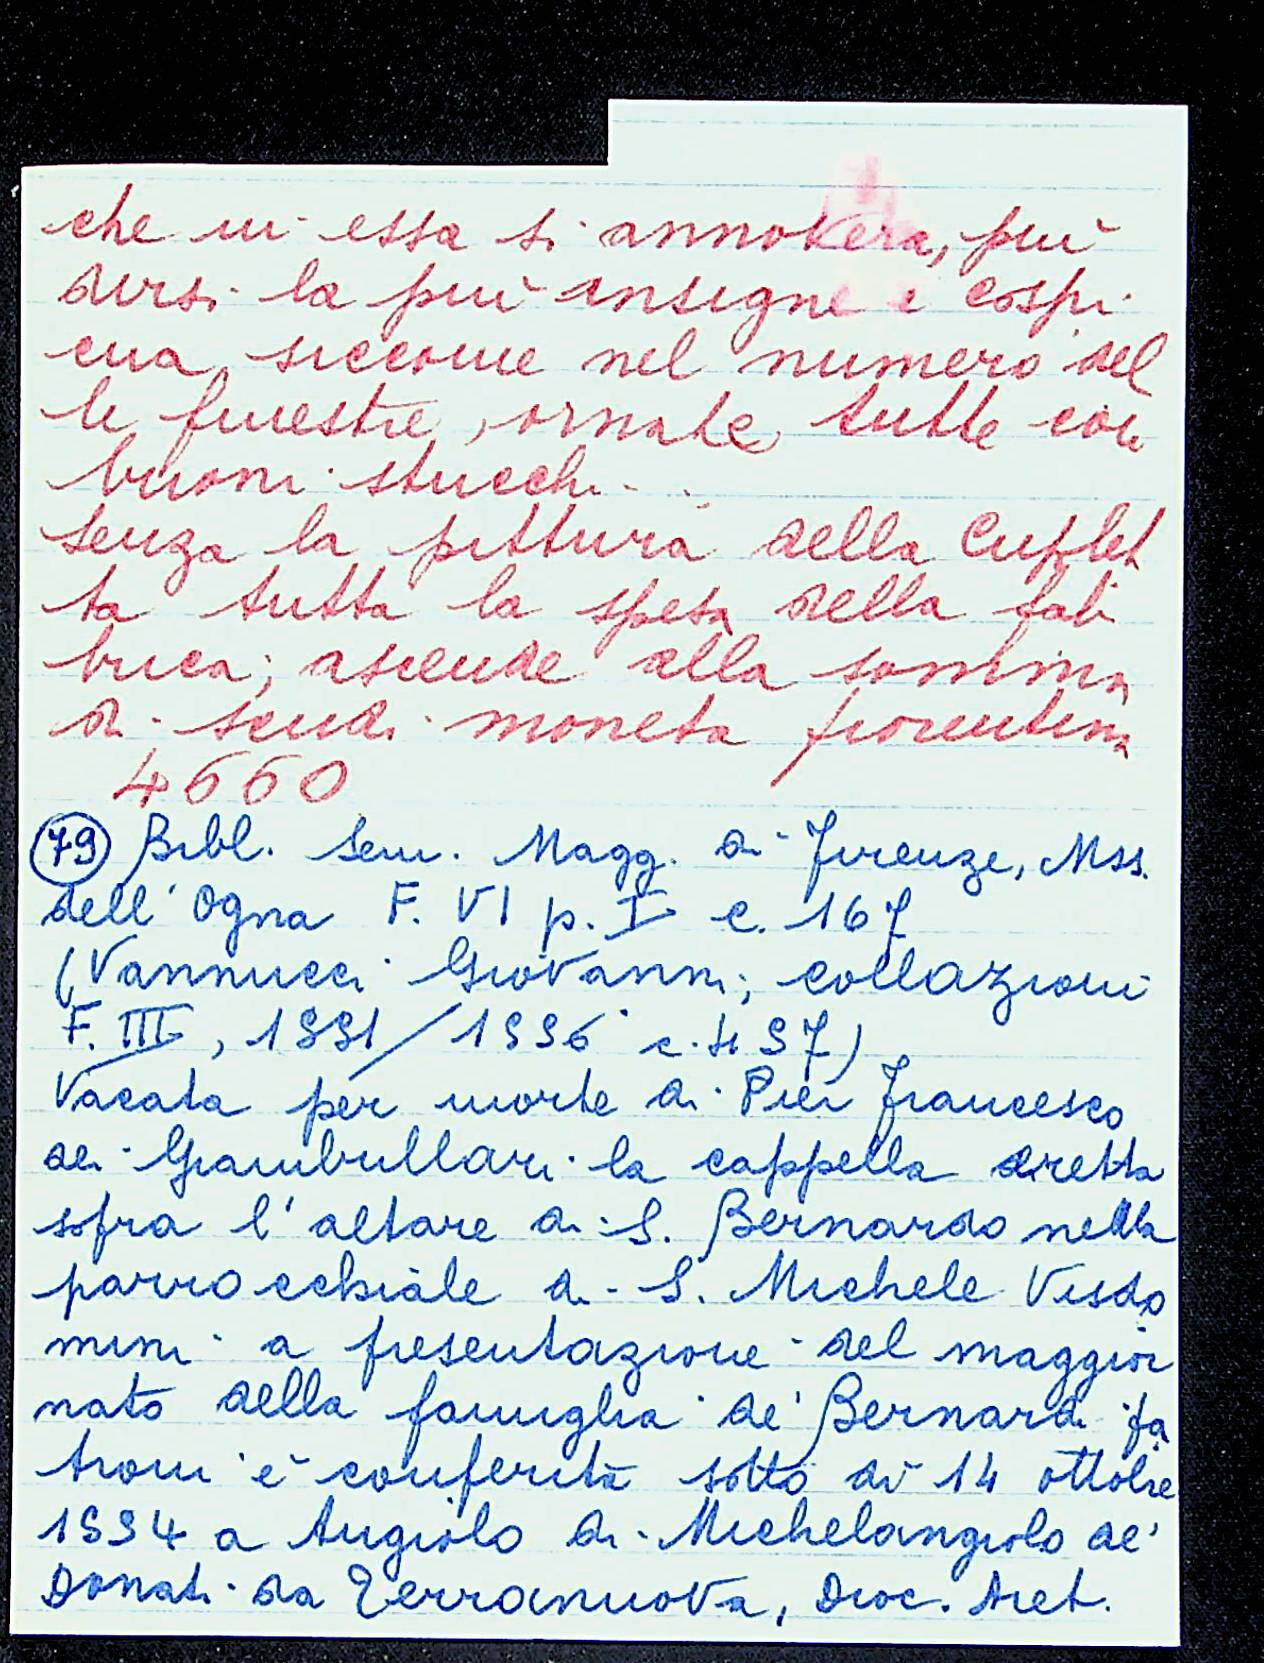 che in essa si annotera, può
dirsi la più insigne e cospi
cua, siccome nel numero del
le finestre, ornate tutte con
buoni stucchi...
senza la pittura della Cuplet
ta tutta la spesa della fab
brica; ascende alla somma
di scudi moneta fiorentina
4660
79 Bibl. Sem. Magg. di Firenze, Mss.
dell'Ogna F. VI p. I c. 167
(Vannucci Giovanni, collazioni
F. III, 1551/1556 c.
Vacata per morte di Pier Francesco
dei Giambullari la cappella eretta
sopra l'altare di S. Bernardo nella
parrocchiale di S. Michele Visdo
mini a presentazione del maggior
nato della famiglia de' Bernardi pa
troni è conferita sotto dì 14 ottobre
1554 a Angiolo di Michelangiolo de'
Donati da Terranuova, Dioc. Aret.